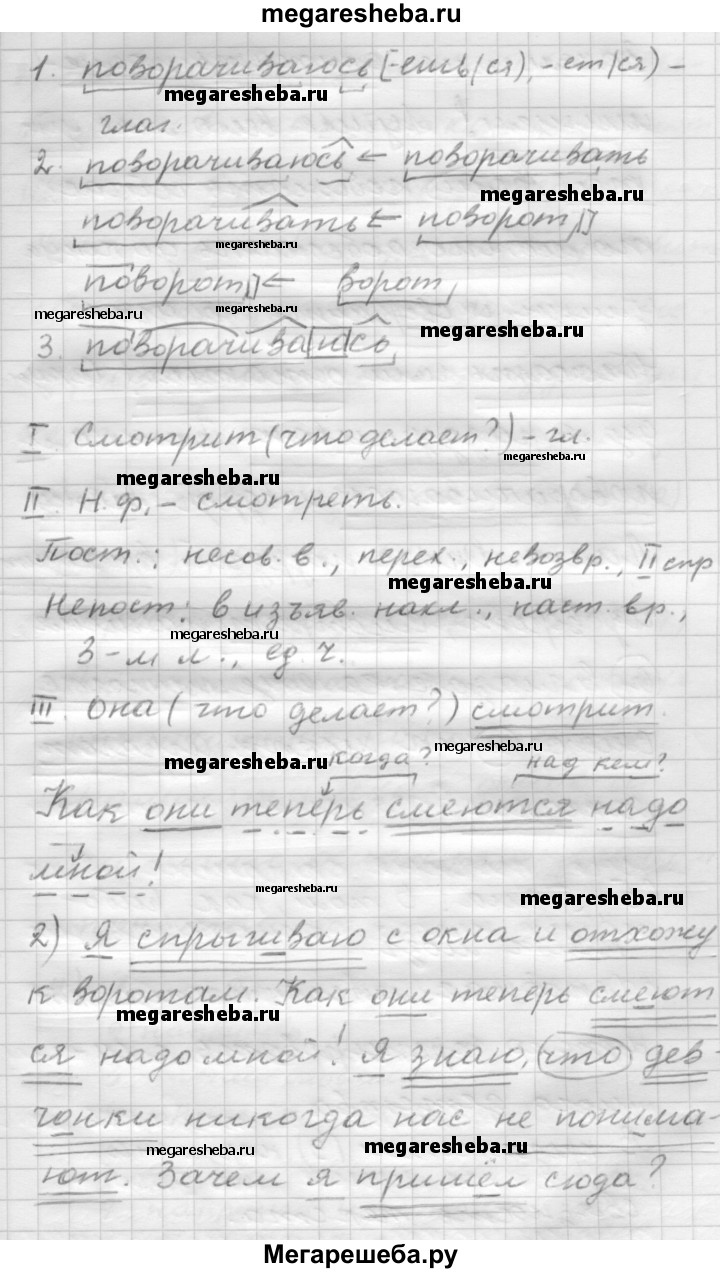 megaresheba.ru
1. поворачиваюсь (-ешь(ся), -ет(ся) -
megaresheba.ru
глаг.
2. поворачиваюсь ← поворачивать
megaresheba.ru
поворачивать ← поворот
megaresheba.ru
поворот ← ворот
megaresheba.ru
megaresheba.ru
megaresheba.ru
3. поворачиваюсь
I. Смотрит (что делает?) - гл.
megaresheba.ru
megaresheba.ru
II. Н.ф. - смотреть.
Пост.: несов. в., перех., невозвр., II спр
megaresheba.ru
Непост: в изъяв. накл., наст. вр.,
megaresheba.ru
3-м л., ед. ч.
III. Она (что делает?) смотрит.
megaresheba.ru
megaresheba.ru
когда? над кем?
Как они теперь смеются надо
мной!
megaresheba.ru
megaresheba.ru
2) Я спрыгиваю с окна и отхожу
к воротам. Как они теперь смеют
megaresheba.ru
ся надо мной! Я знаю, что дев-
чонки никогда нас не понима-
megaresheba.ru
megaresheba.ru
ют. Зачем я пришёл сюда?
Мегарешеба.ру